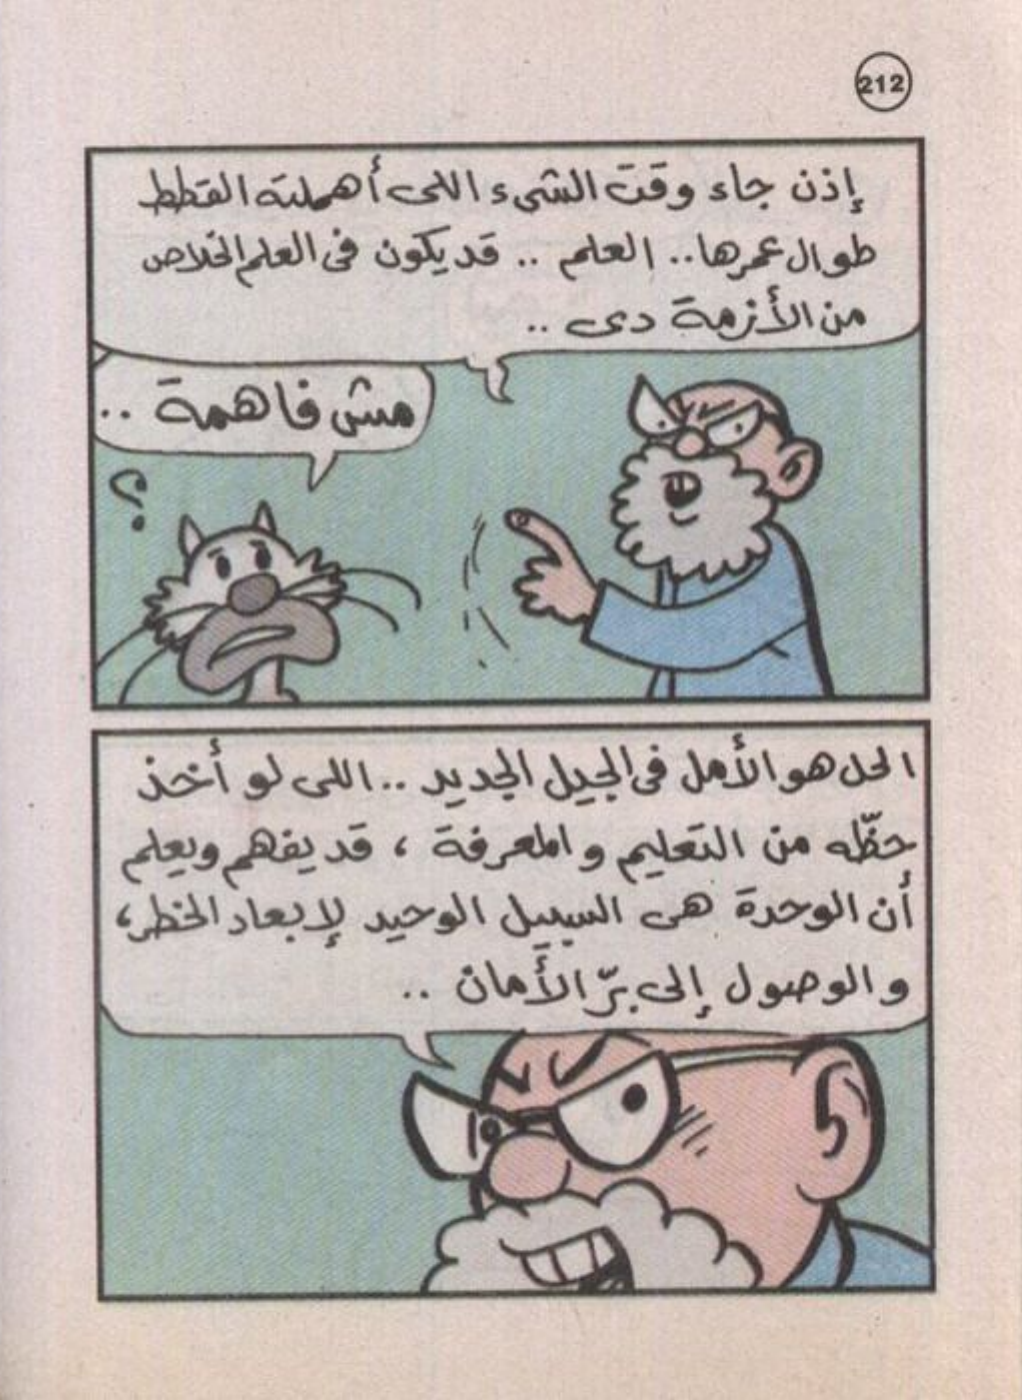 212
إذن جاء وقت الشيء اللى أهملته القطط
طوال عمرها.. العلم .. قد يكون فى العلم الخلاص
من الأزمة دى ..
مش فاهمة ..
؟
الحل هو الأمل فى الجيل الجديد .. اللى لو أخذ
حظّه من التعليم والمعرفة ، قد يفهم ويعلم
أن الوحدة هى السبيل الوحيد لإبعاد الخطر،
والوصول إلى برّ الأمان ..